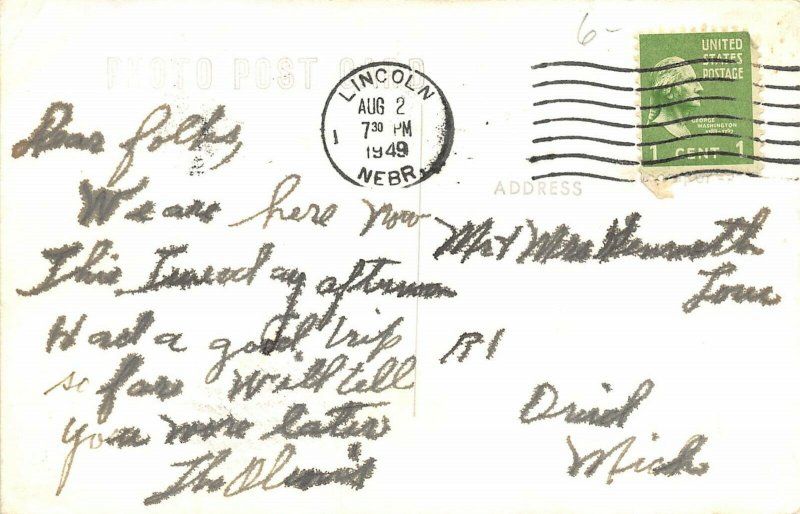 6-
PHOTO POST CARD
LINCOLN
AUG 2
7 30 PM
1949
NEBR.
1
UNITED
STATES
POSTAGE
GEORGE
WASHINGTON
1 CENT 1
ADDRESS
Dear folks,
We are here now
This Tuesday afternoon
Had a good trip
so far Will tell
you more later
The
Mr & Mrs Kenneth
R1
Mich